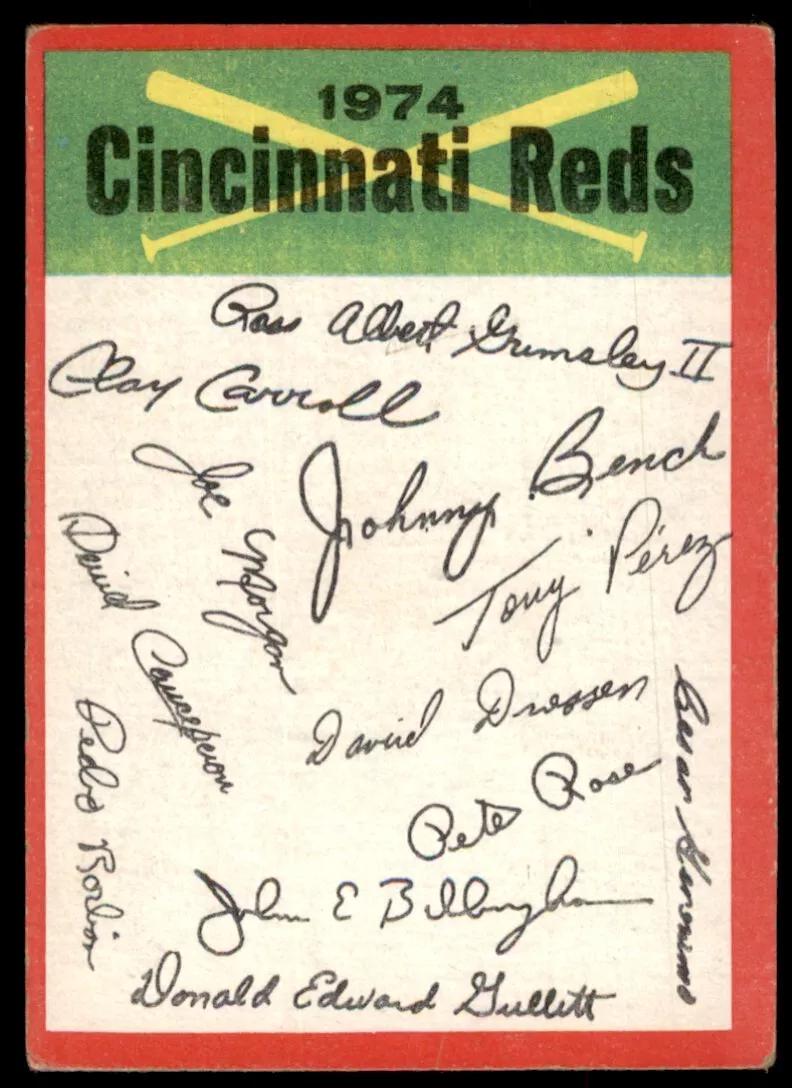 1974
Cincinnati Reds
Ross Albert Grimsley II
Clay Carroll
Johnny Bench
Joe Morgan
Tony Pérez
David Concepcion
David Driessen
Cesar Geronimo
Pedro Borbon
Pete Rose
John E Billingham
Donald Edward Gullett